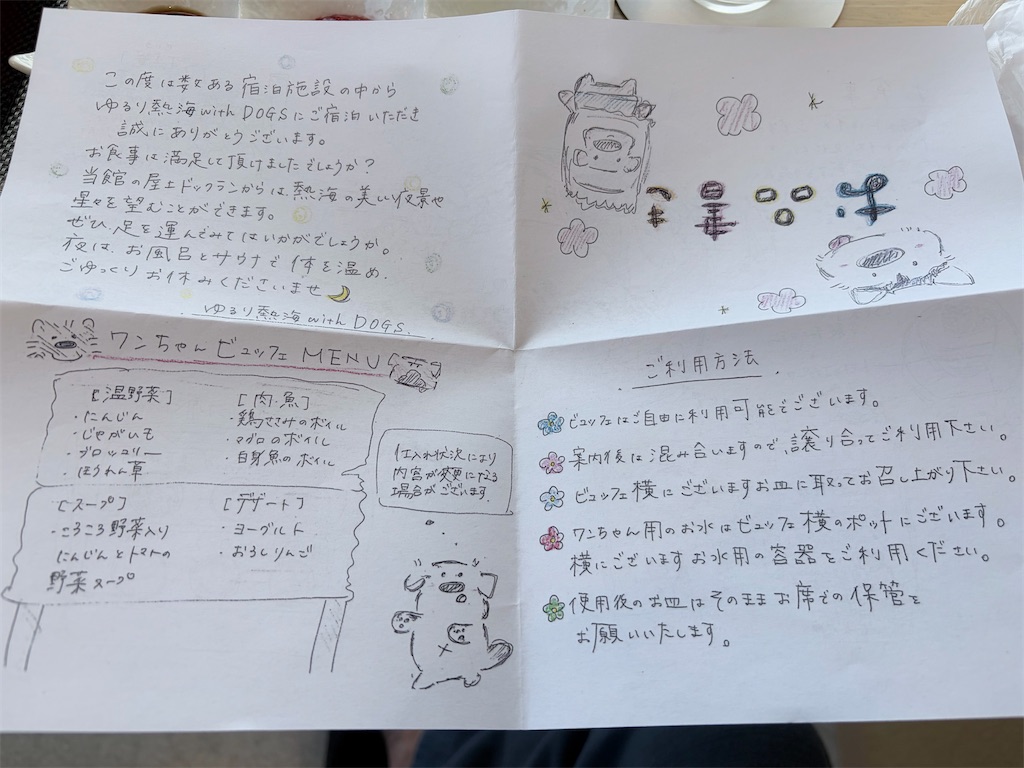 この度は数ある宿泊施設の中から
ゆるり熱海with DOGSにご宿泊いただき
誠にありがとうございます。
お食事は満足して頂けましたでしょうか？
当館の屋上ドックランからは、熱海の美しい夜景や
星々を望むことができます。
ぜひ、足を運んでみてはいかがでしょうか。
夜は、お風呂とサウナで体を温め、
ごゆっくりお休みくださいませ
ゆるり熱海with DOGS.
ワンちゃんビュッフェ MENU
[温野菜]
・にんじん
・じゃがいも
・ブロッコリー
・ほうれん草
[肉・魚]
・鶏ささみのボイル
・マグロのボイル
・白身魚のボイル
[スープ]
・ころころ野菜入り
にんじんとトマトの
野菜スープ
[デザート]
・ヨーグルト
・おろしりんご
仕入れ状況により
内容が変更になる
場合がございます
ご利用方法
ビュッフェはご自由に利用可能でございます。
案内後は混み合いますので、譲り合ってご利用下さい。
ビュッフェ横にございますお皿に取ってお召し上がり下さい。
ワンちゃん用のお水はビュッフェ横のポットにございます。
横にございますお水用の容器をご利用ください。
使用後のお皿はそのままお席での保管を
お願いいたします。